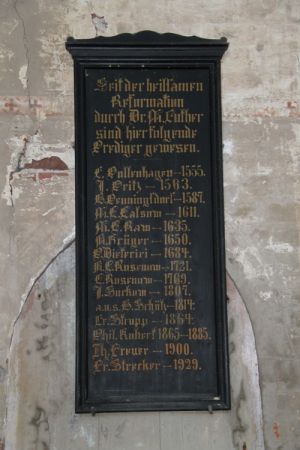 Seit der heilsamen
Reformation
durch Dr. M. Luther
sind hier folgende
Prediger gewesen.
1555.
J. Britz — 1563.
1587.
M. C. Calsow — 1611.
M. C. Raw — 1635.
Krüger — 1650.
Dieterici — 1684.
B. C. Rosenow — 1721.
C. Rosenow — 1769.
J. Suckow — 1807.
Schütz — 1814.
Fr. Strupp — 1864.
Phil. Kubert 1865—1885.
Th. Breuer — 1900.
Fr. Strecker — 1929.